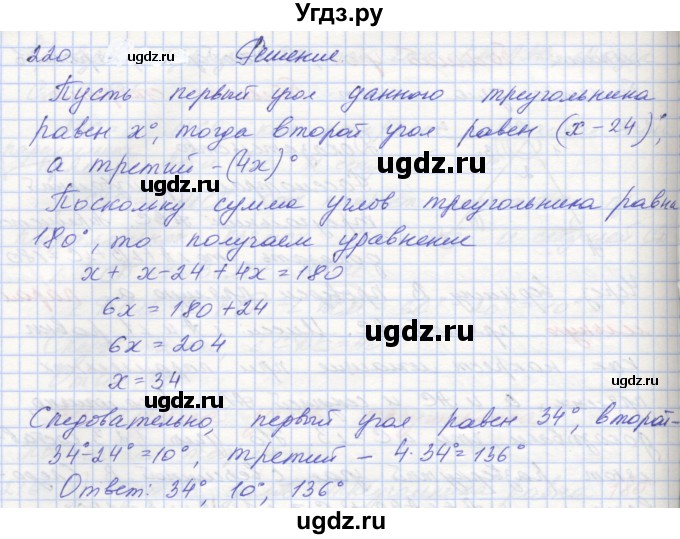 Угдз.ру
220. Решение.
Пусть первый угол данного треугольника
равен x°, тогда второй угол равен (x-24)°,
а третий - (4x)°
Поскольку сумма углов треугольника равна
180°, то получаем уравнение
x + x-24 + 4x = 180
6x = 180+24
6x = 204
x = 34
Следовательно, первый угол равен 34°, второй-
34°-24°=10°, третий - 4·34°=136°
Ответ: 34°, 10°, 136°
ugdz.ru
ugdz.ru
ugdz.ru
ugdz.ru
ugdz.ru
ugdz.ru
ugdz.ru
ugdz.ru
ugdz.ru
ugdz.ru